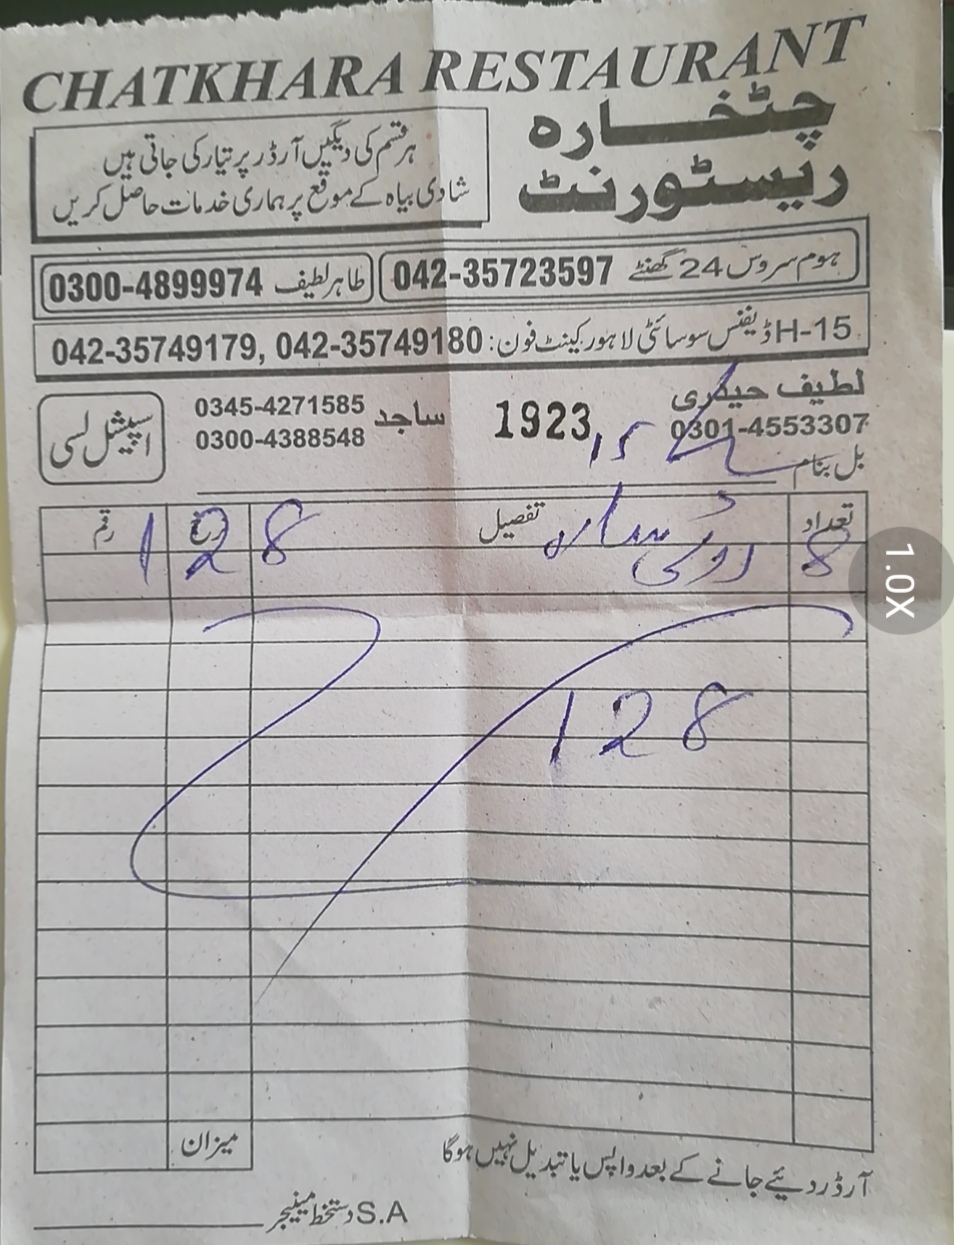 CHATKHARA RESTAURANT
چٹخارہ
ریسٹورنٹ
ہر قسم کی دیگیں آرڈر پر تیار کی جاتی ہیں
شادی بیاہ کے موقع پر ہماری خدمات حاصل کریں
ہوم سروس 24 گھنٹے 042-35723597
طاہر لطیف 0300-4899974
H-15 ڈیفنس سوسائٹی لاہور کینٹ فون: 042-35749179, 042-35749180
لطیف حیدری
0301-4553307
1923
ساجد 0345-4271585
0300-4388548
اسپیشل لسی
بل بنام
تعداد تفصیل نرخ رقم
8 روٹی سادہ 128
128
میزان
آرڈر دیئے جانے کے بعد واپس یا تبدیل نہیں ہوگا
S.A دستخط مینیجر
1.0X